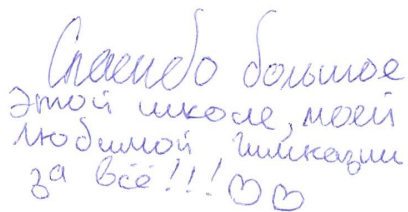 Спасибо большое
этой школе, моей
любимой гимназии
за всё!!! ♡♡